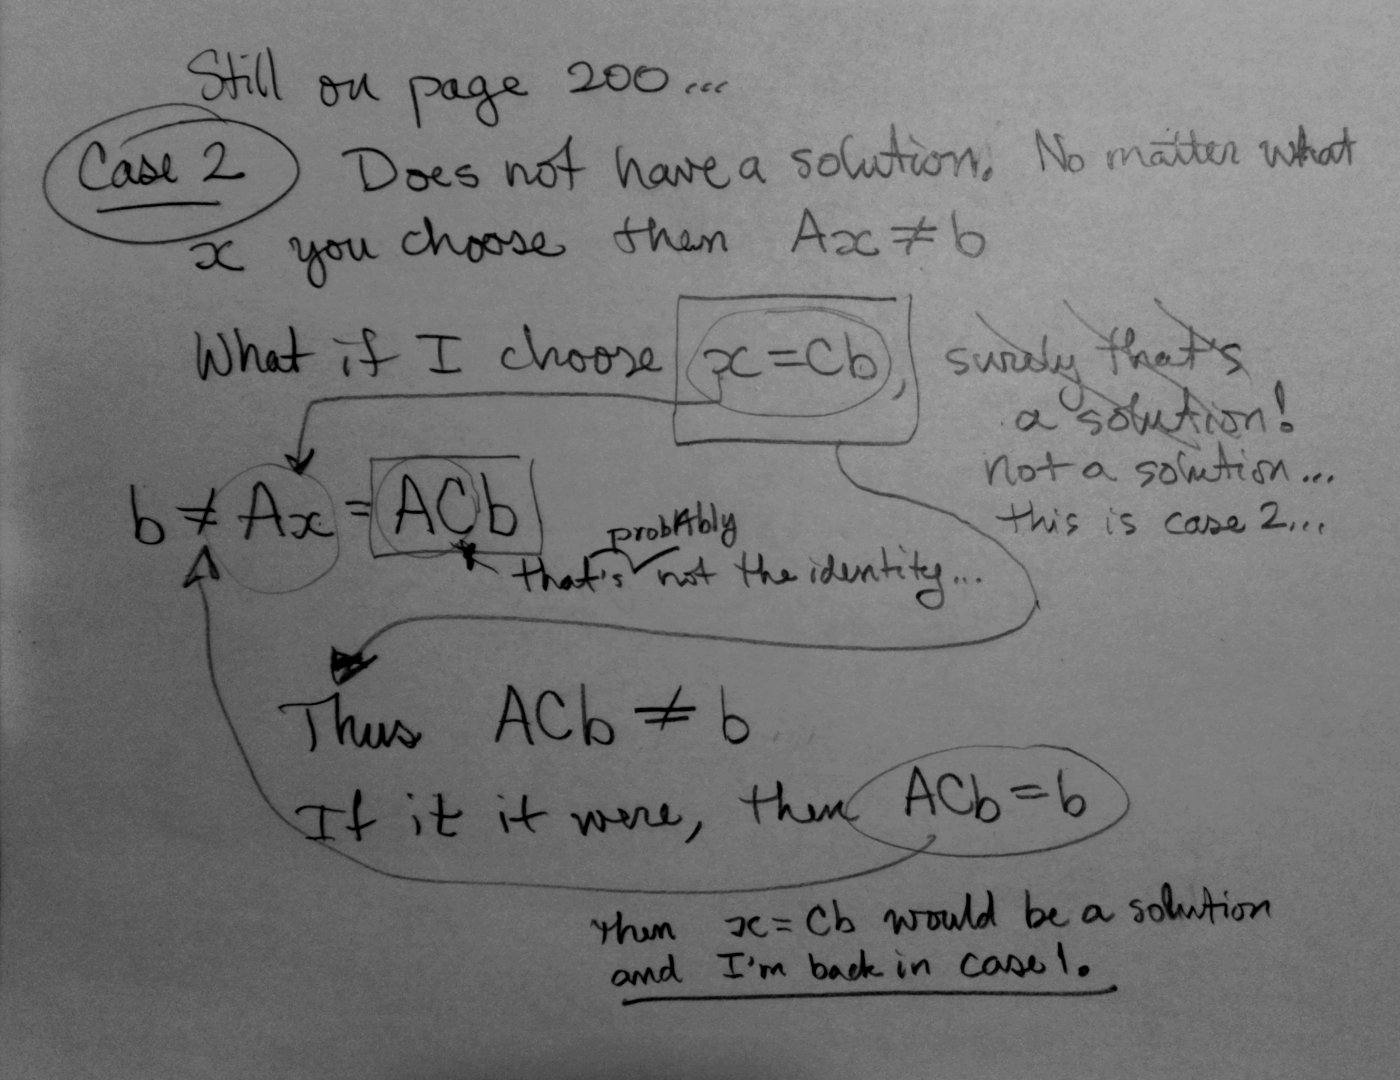 Still on page 200...
Case 2 Does not have a solution. No matter what
x you choose then Ax ≠ b
What if I choose x = Cb, surely that's
a solution!
not a solution...
this is case 2...
b ≠ Ax = ACb
probAbly
that's not the identity...
Thus ACb ≠ b
If it it were, then ACb = b
then x = Cb would be a solution
and I'm back in case 1.